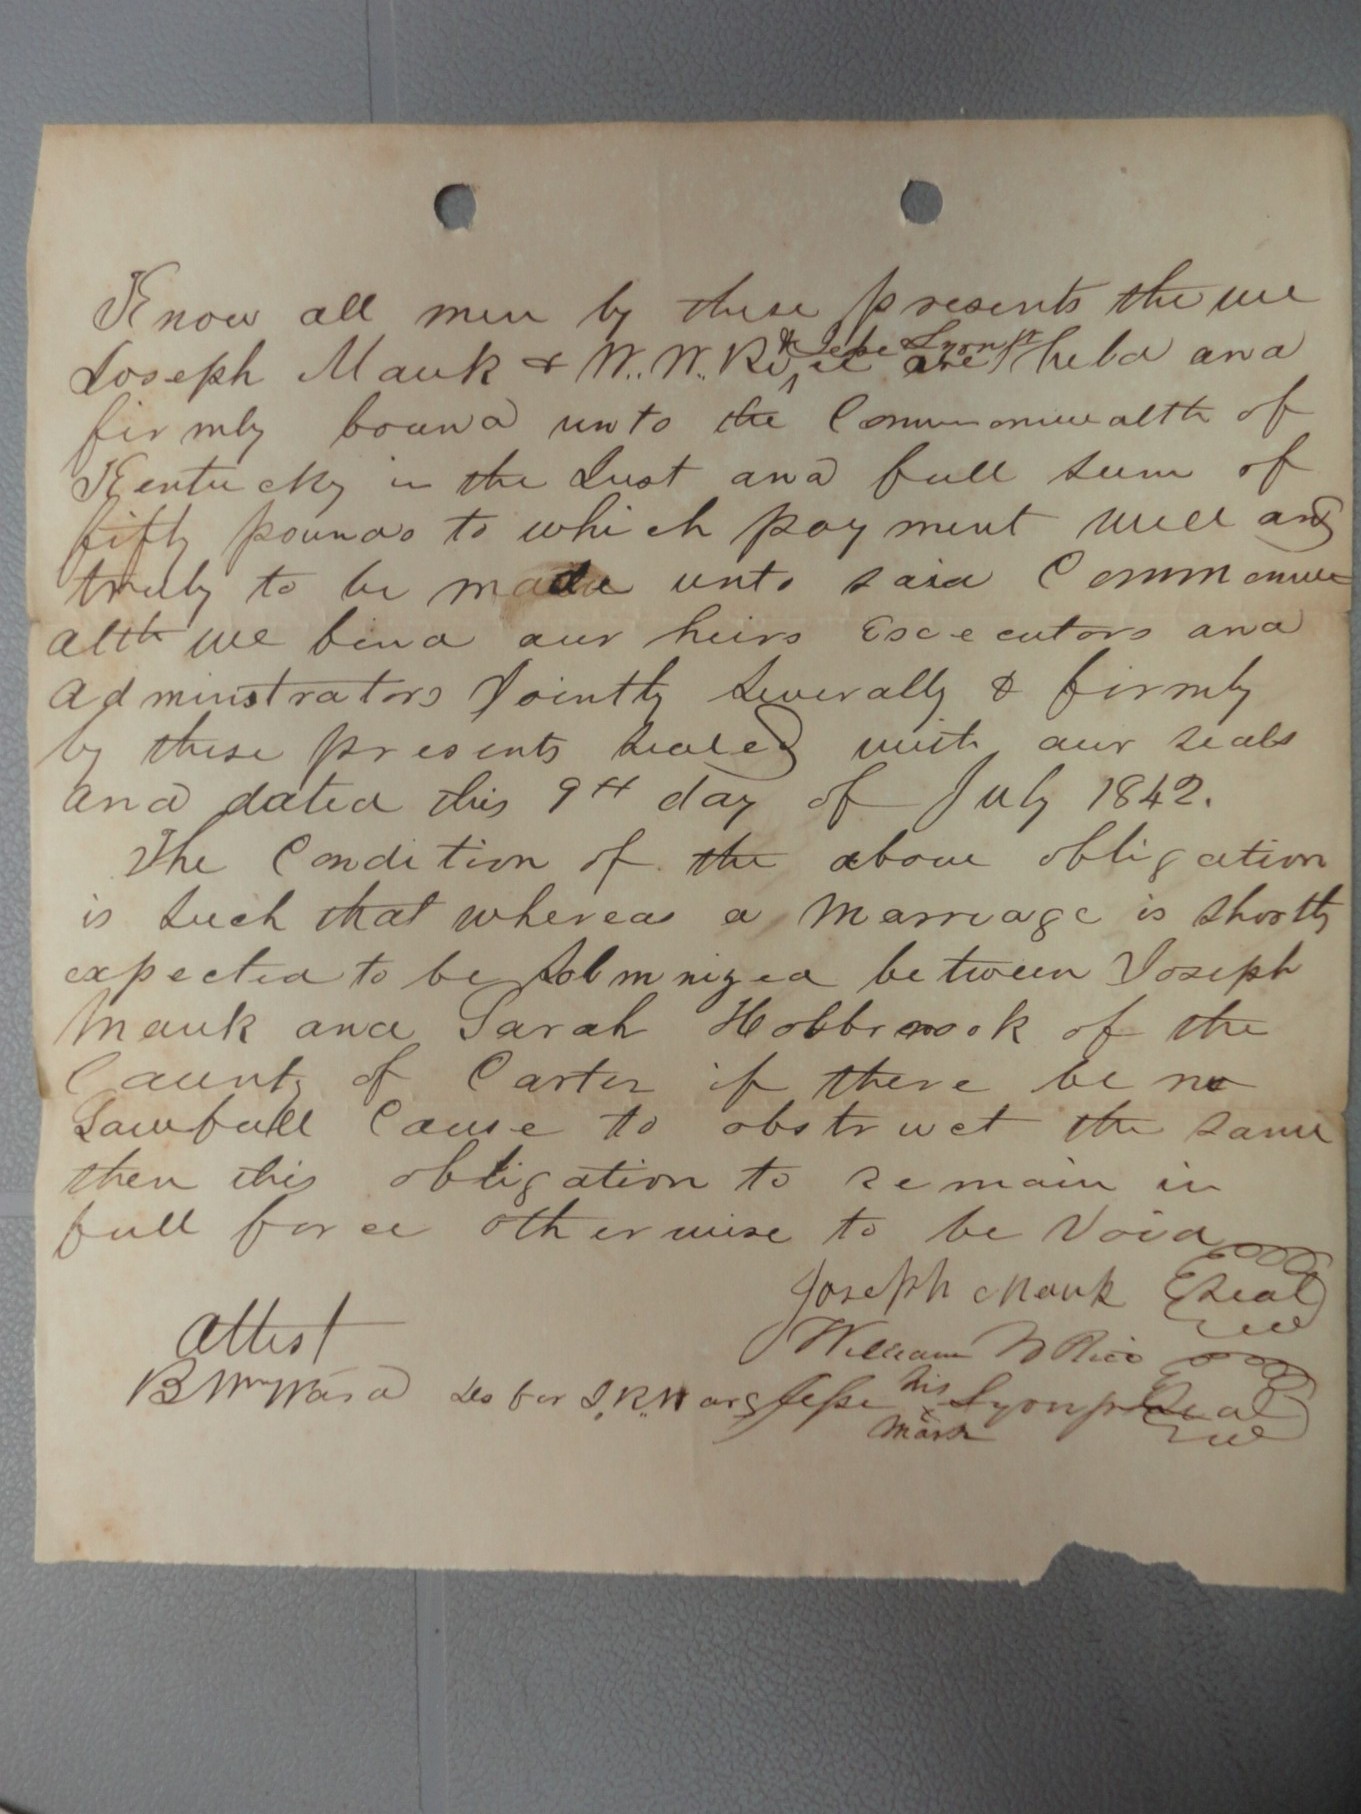 Know all men by these presents the we
& Jesse Lyons
Joseph Mauk & W. W. Rice are held and
firmly bound unto the Commonwealth of
Kentucky in the Just and full sum of
fifty pounds to which payment well and
truly to be made unto said Commonwe=
alth we bind our heirs Excecutors and
adminstrators Jointly severally & firmly
by these presents sealed with our seals
and dated this 9th day of July 1842.
The Condition of the above obligation
is such that whereas a marriage is shortly
expected to be Solmnized between Joseph
Mauk and Sarah Holbrook of the
County of Carter if there be no
Lawfull Cause to obstruct the same
then this obligation to remain in
full force otherwise to be Void
Joseph Mauk Seal
Attest William W Rice
his
B Wm Ward for J. R. Ward Jesse Lyons Seal
mark